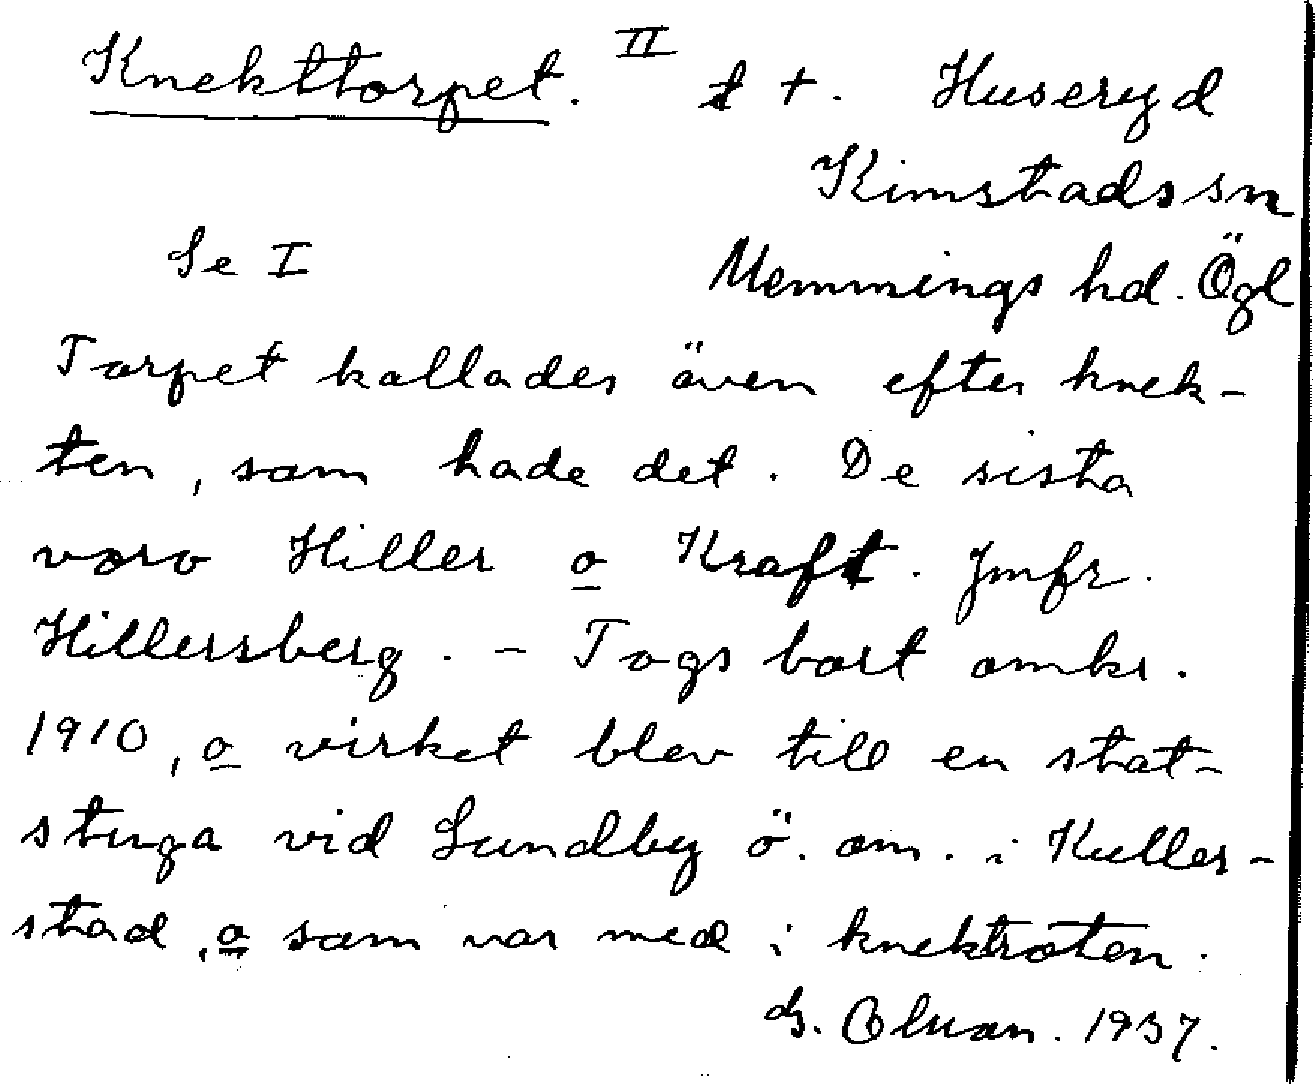 Knekttorpet. II t +. Huseryd
Kimstads sn
Se I Memmings hd. Ögl
Torpet kallades även efter knek-
ten, som hade det. De sista
voro Hiller o Kraft. Jmfr.
Hillersberg. - Togs bort omkr.
1910, o virket blev till en stat-
stuga vid Lundby ö. om. i Kuller-
stad, o som var med i knektroten.
1937.